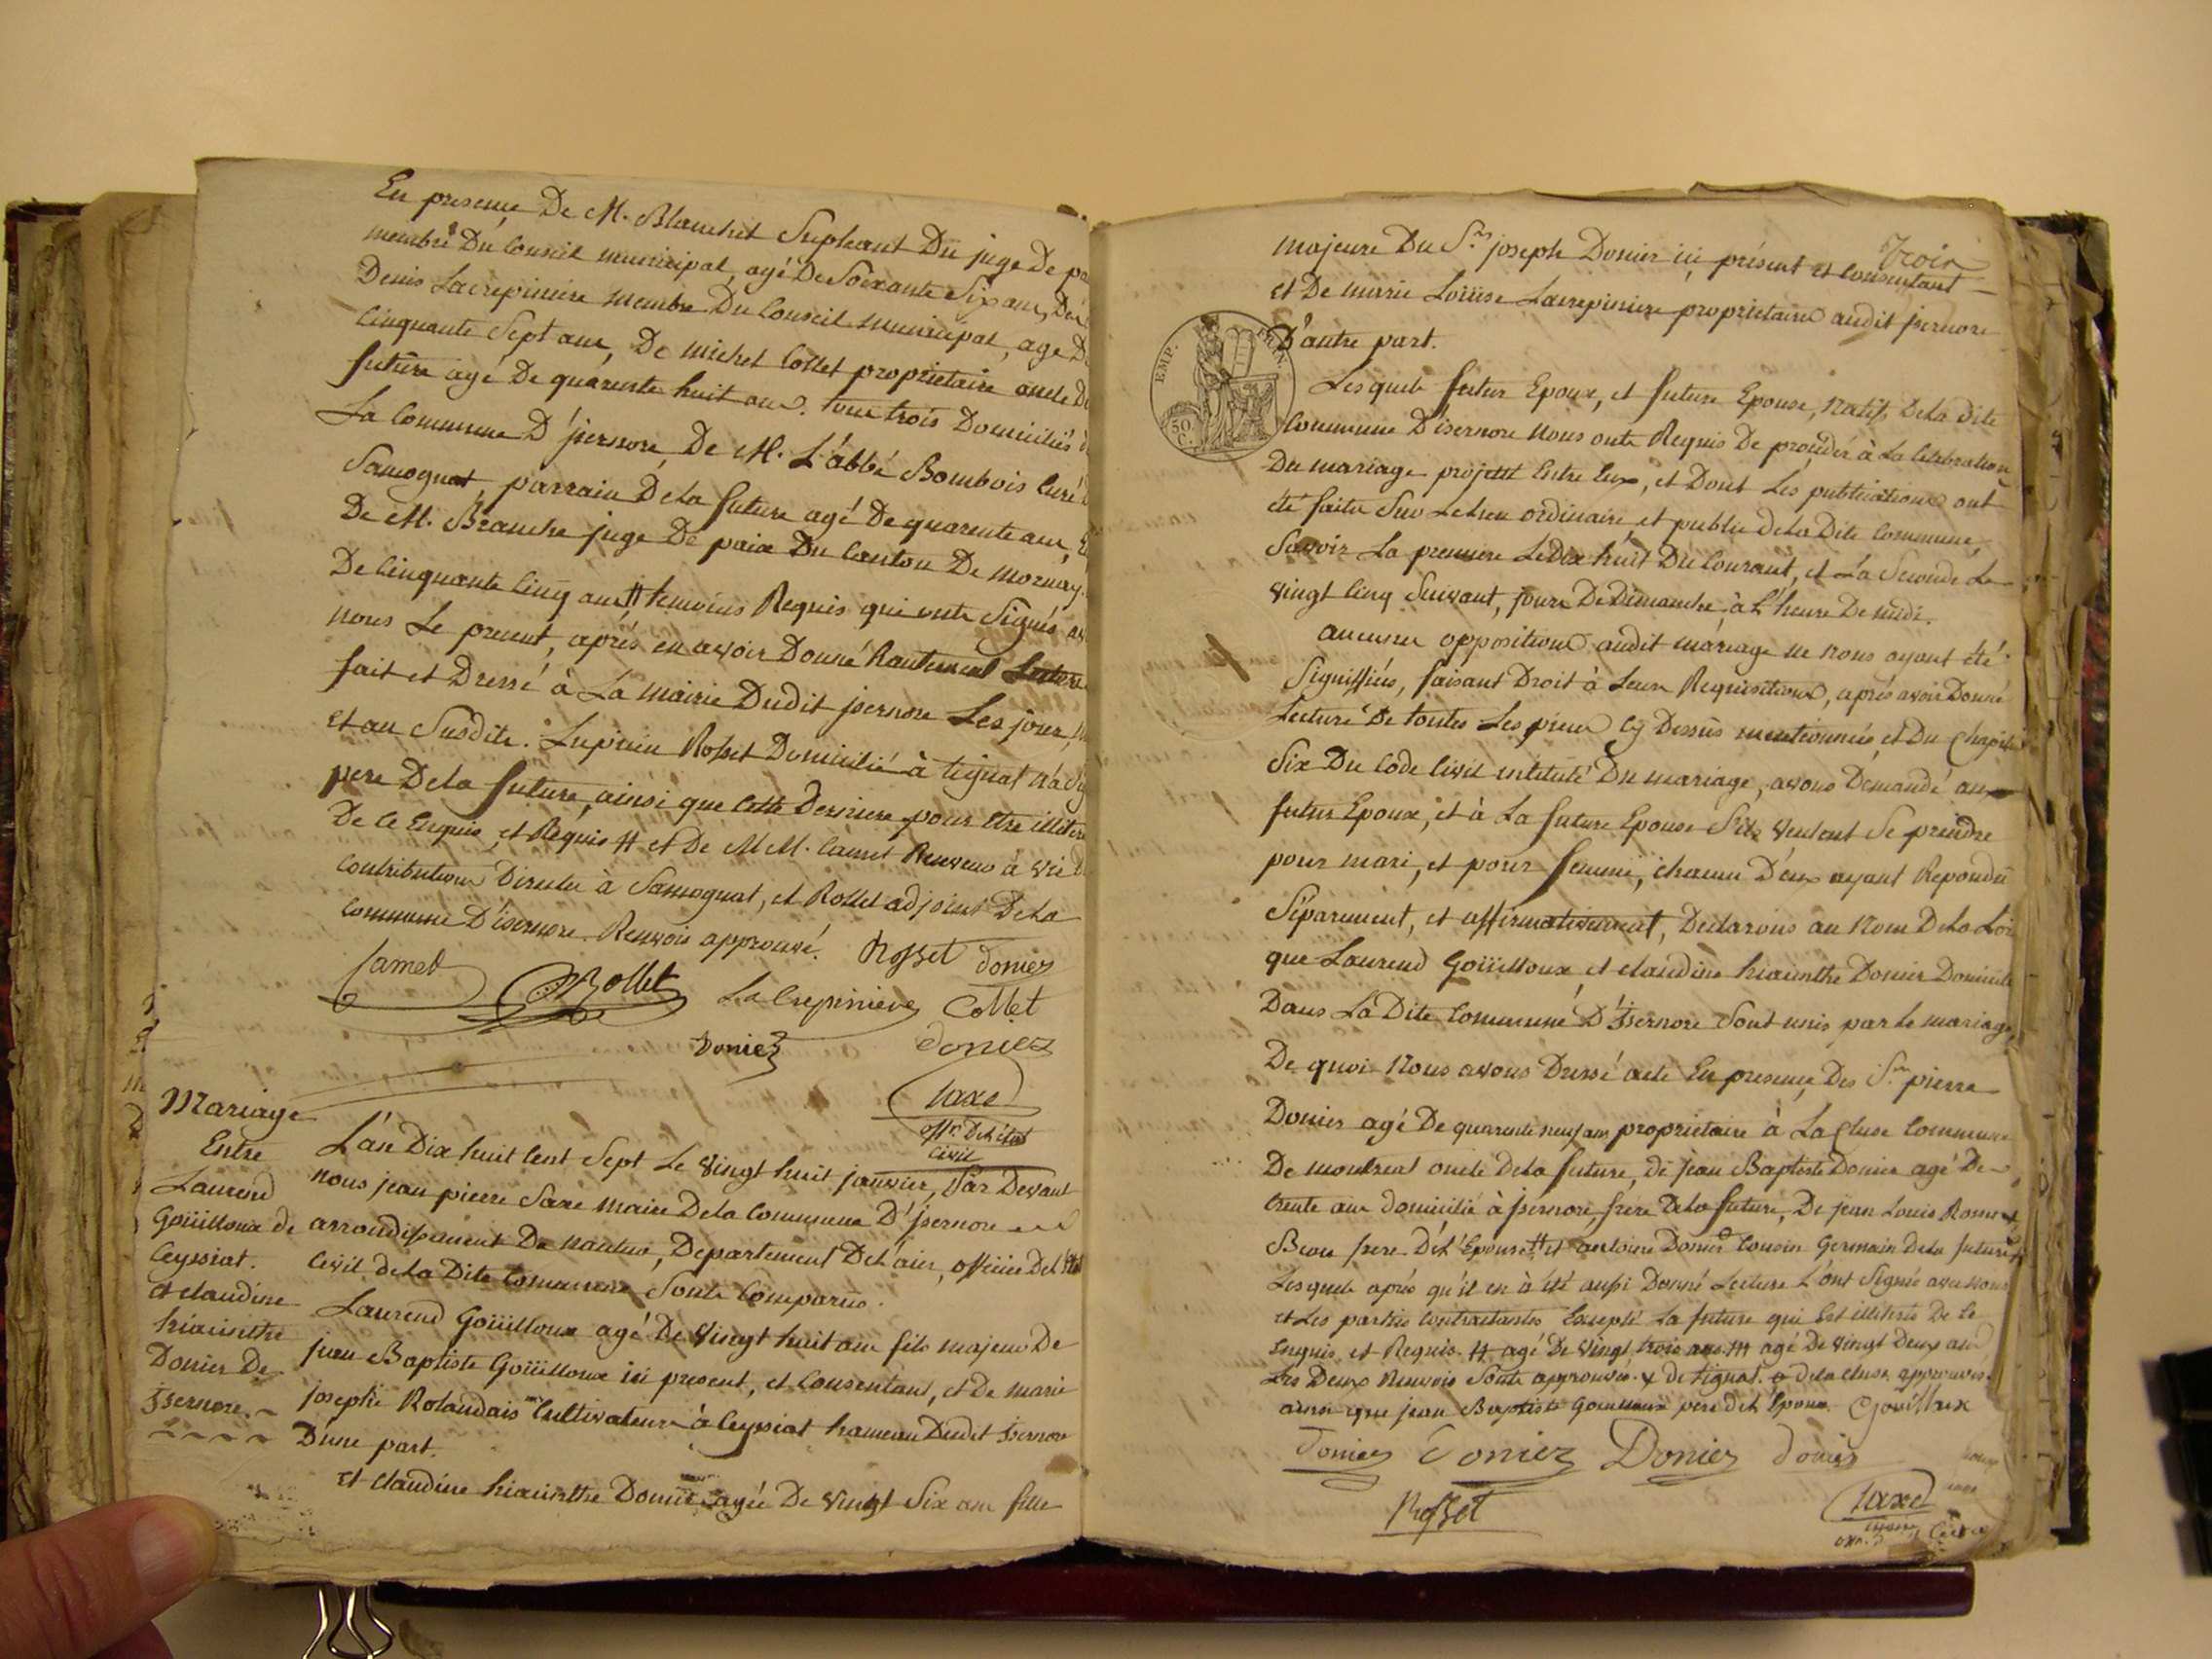 En presence De M. Blanchet Supleant Du juge De pa
membre Du Conseil municipal, agé De Soixante Six ans, De
Denis Lacrepiniere membre Du Conseil municipal, agé D
Cinquante Sept ans, De michel Collet proprietaire oncle De
future agé De quarente huit ans. tous trois Domiciliés à
La Commune D'jsernore, De M. L'abbé Bombois Curé
Samognat parrain De la future agé De quarente ans, E
De M. Branche juge De paix Du Canton De mornay
De Cinquante Cinq ans # temoins Requis qui onts Signés av
nous Le present, aprés en avoir Donné hautement Lecture
fait et Dressé à La mairie Dudit jsernore Les jour, 
et an Susdits. Lupicin Rosset Domicilié à tignat
pere De la future, ainsi que Cette Derniere pour etre illiteré
De Ce Enquis, et Requis # et De M M. Camet
Contributions Directes à Samognat, et Rollet adjoint De la
Commune D'isernore. Renvois approuvé. Rosset doniez
Jamet Rollet La Crepiniere Collet
Doniez Doniez
Saxe
offr. De l'état
Civil
Mariage
Entre
Laurend
Goüilloux de
Ceyssiat.
et claudine
hiacinthe
Donier De
jsernore.
L'an Dix huit Cent Sept Le Vingt huit janvier, Par Devant
nous jean pierre Saxe maire De la Commune D'jsernore
arrondissement De nantua, Departement De l'ain, officier De l'Etat
Civil de la Dite Commune Sonts Comparus.
Laurend Goüilloux agé De Vingt huit ans fils majeur De
jean Baptiste Goüilloux ici present, et Consentant, et De marie
josephe Rolandais Cultivateurs à Ceyssiat hameau Dudit jsernore
D'une part.
et claudine hiacinthe Donier agée De Vingt Six ans fille
Trois
majeure Du S.r joseph Donier ici présent et Consentant
et De marie Loüise Lacrepiniere proprietaires audit jsernore
D'autre part.
EMP. FRAN.
50 C.
Lesquels futur Epoux, et future Epouse, natifs De la dite
Commune D'isernore nous onts Requis De procéder à La Celebration
Du mariage projetté Entre Eux, et Dont Les publications ont
été faites Sur Le lieu ordinaire et public de la Dite Commune,
Savoir La premiere Le Dix huit Du Courant, et La Seconde Le
Vingt Cinq Suivant, jours De Dimanche à L'heure De midi.
aucunes oppositions audit mariage ne nous ayant été
Signiffiées, faisant Droit à Leurs Requisitions, aprés avoir Donné
Lecture De toutes Les pieces Cy Dessus mentionnées et Du Chapitre
Six Du Code Civil intitulé Du mariage, avons Demandé au
futur Epoux, et à La future Epouse S'ils Veulent Se prendre
pour mari, et pour femme, chacun D'eux ayant Repondu
Séparement, et affirmativement, Declarons au Nom De la Loi
que Laurend Goüilloux et claudine hiacinthe Donier Domiciliés
Dans La Dite Commune D'jsernore Sont unis par le mariage,
De quoi Nous avons Dressé acte En presence Des S.rs pierre
Donier agé De quarente neuf ans proprietaire à La Cluse Commune
De montreal oncle de la future, de jean Baptiste Donier agé De
trente ans domicilié à jsernore, frere De la future, De jean Louis Romand,
Beau frere De l'Epouse # et antoine Donier Cousin Germain de la future
Lesquels aprés qu'il en a été aussi Donné Lecture L'ont Signée avec nous
et Les parties Contractantes Excepté La future qui Est illiterée De Ce
Enquis et Requis. # agé De Vingt trois ans. ## agé De Vingt Deux ans
Les Deux Renvois Sonts approuvés. x de tignat. de la cluse approuvés.
ainsi que jean Baptiste Goüilloux pere de L'Epoux Goüilloux
Doniez Doniez Doniez doniez
Rosset
Saxe
maire